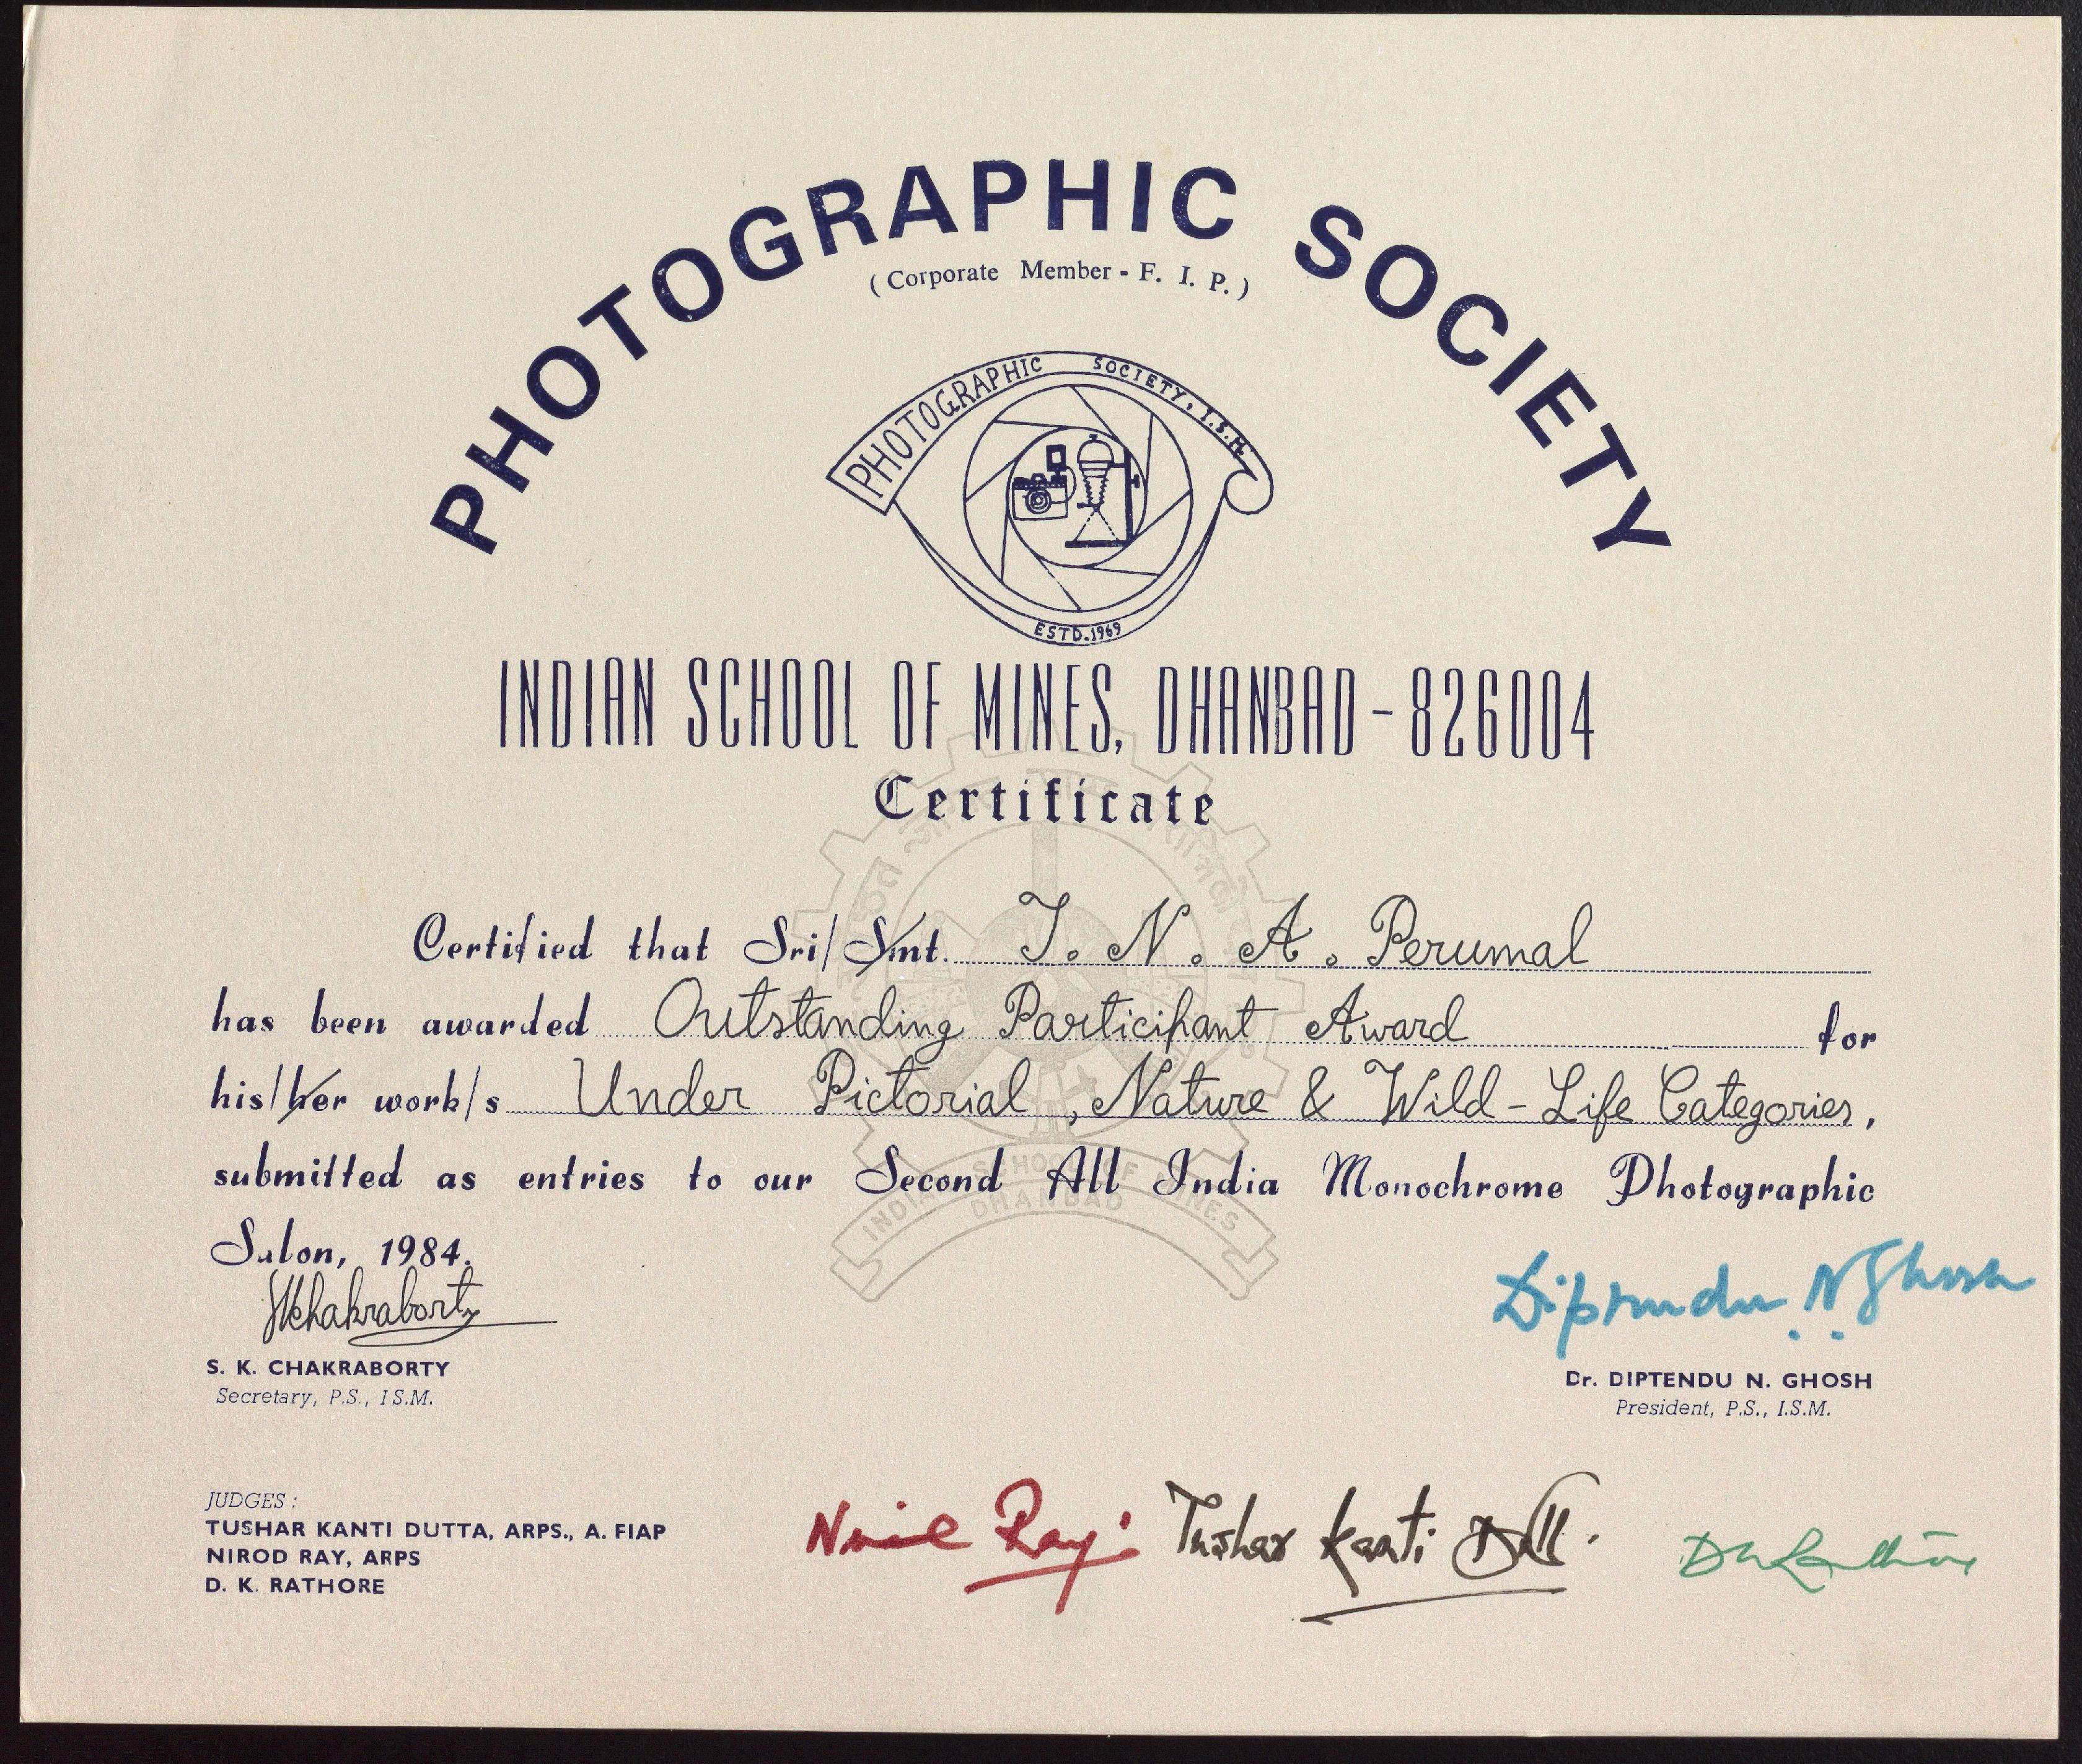 PHOTOGRAPHIC SOCIETY
( Corporate Member - F. I. P. )
PHOTOGRAPHIC SOCIETY, I.S.M.
ESTD.1969
INDIAN SCHOOL OF MINES, DHANBAD-826004
Certificate
Certified that Sri/Smt. T. N. A. Perumal
has been awarded Outstanding Participant Award for
his/her work/s Under Pictorial, Nature & Wild-Life Categories,
submitted as entries to our Second All India Monochrome Photographic
Salon, 1984.
INDIAN SCHOOL OF MINES
DHANBAD
SKChakraborty
Diptendu N Ghosh
S. K. CHAKRABORTY
Secretary, P.S., I.S.M.
Dr. DIPTENDU N. GHOSH
President, P.S., I.S.M.
JUDGES :
TUSHAR KANTI DUTTA, ARPS., A. FIAP
NIROD RAY, ARPS
D. K. RATHORE
Ray Tushar Kanti Dutt.